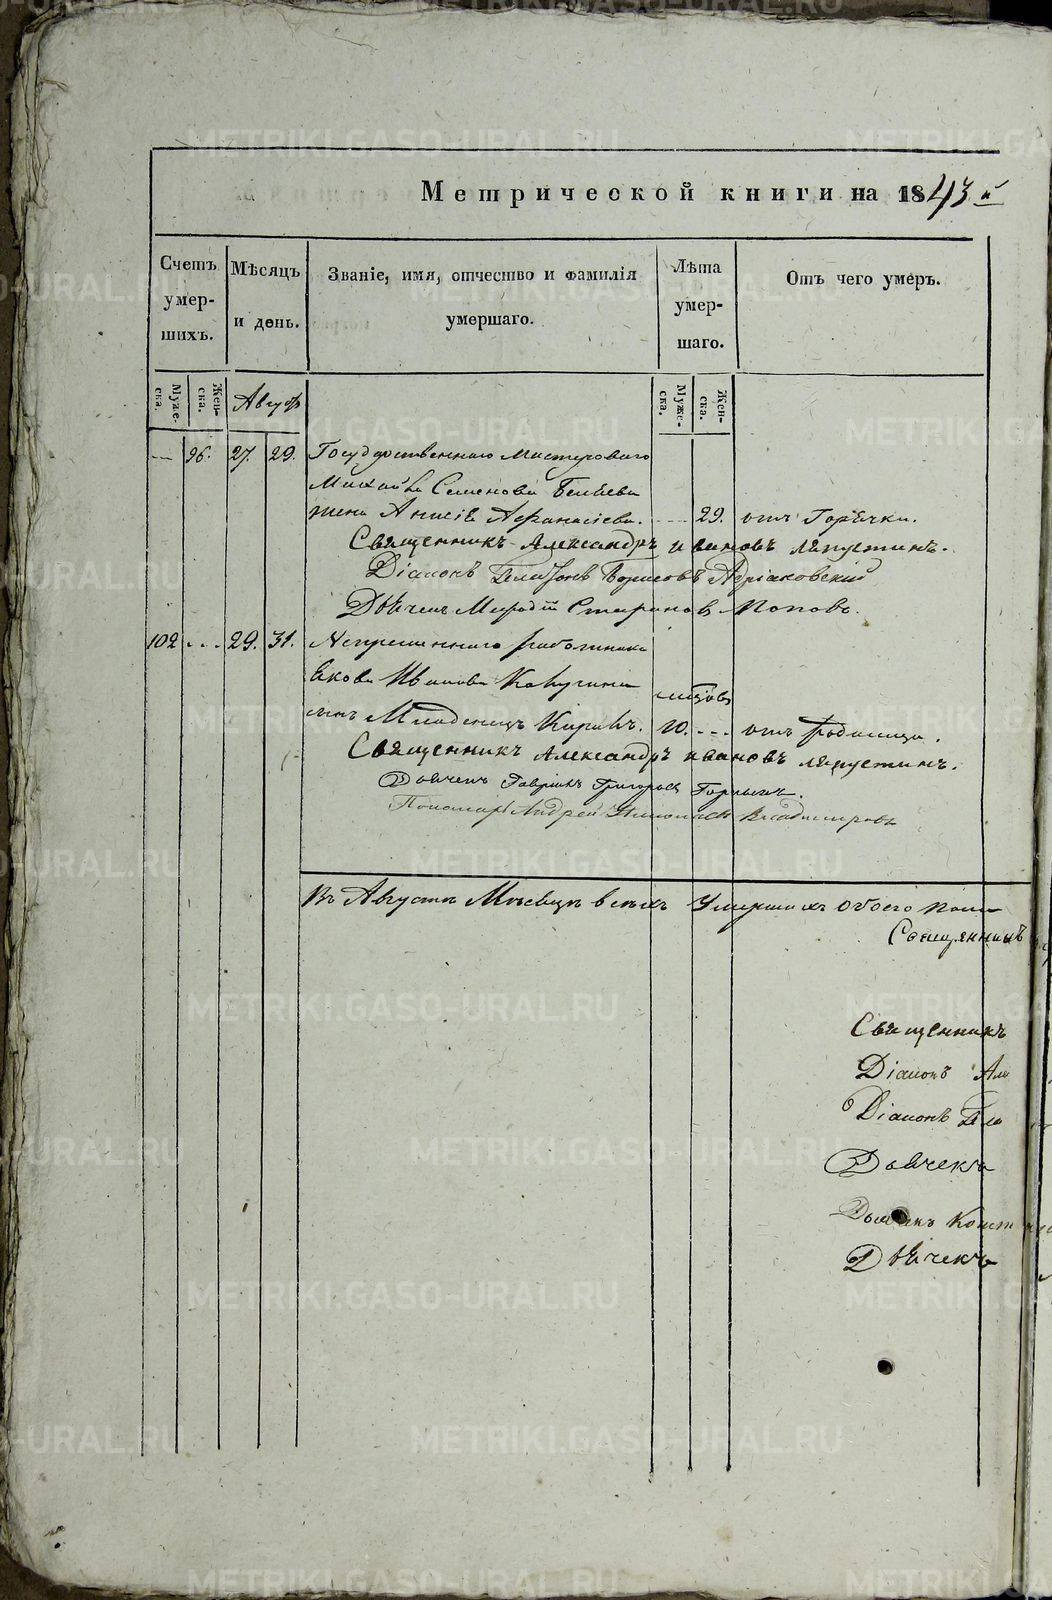 Метрической книги на 1843й
Счетъ умер- шихъ.
Мѣсяцъ и день.
Званіе, имя, отчество и фамилія умершаго.
Лѣта умер- шаго.
Отъ чего умеръ.
Муже- ска.
Жен- ска.
Август
Муже- ска.
Жен- ска.
96. 27. 29. Государственнаго Мастероваго
Михайла Семенова
жена Анисія Афанасіева. 29. отъ Горячки.
Священникъ Александръ Ивановъ Ляпустинъ.
Діаконъ Борисовъ Адріановскій
Дьячекъ Мефодій Стефановъ Поповъ.
102 29. 31. Непременнаго работника
Якова Иванова
сынъ Младенецъ 10. отъ родимца.
Священникъ Александръ Ивановъ Ляпустинъ.
Дьячекъ Гавріилъ Григорьевъ
Пономарь Андрей Владимировъ
Въ Августѣ Мѣсяцѣ всѣхъ Умершихъ Обоего пола
Священникъ
Священникъ
Діаконъ Але
Діаконъ
Дьячекъ
Дьячекъ Конст
Дьячекъ
METRIKI.GASO-URAL.RU